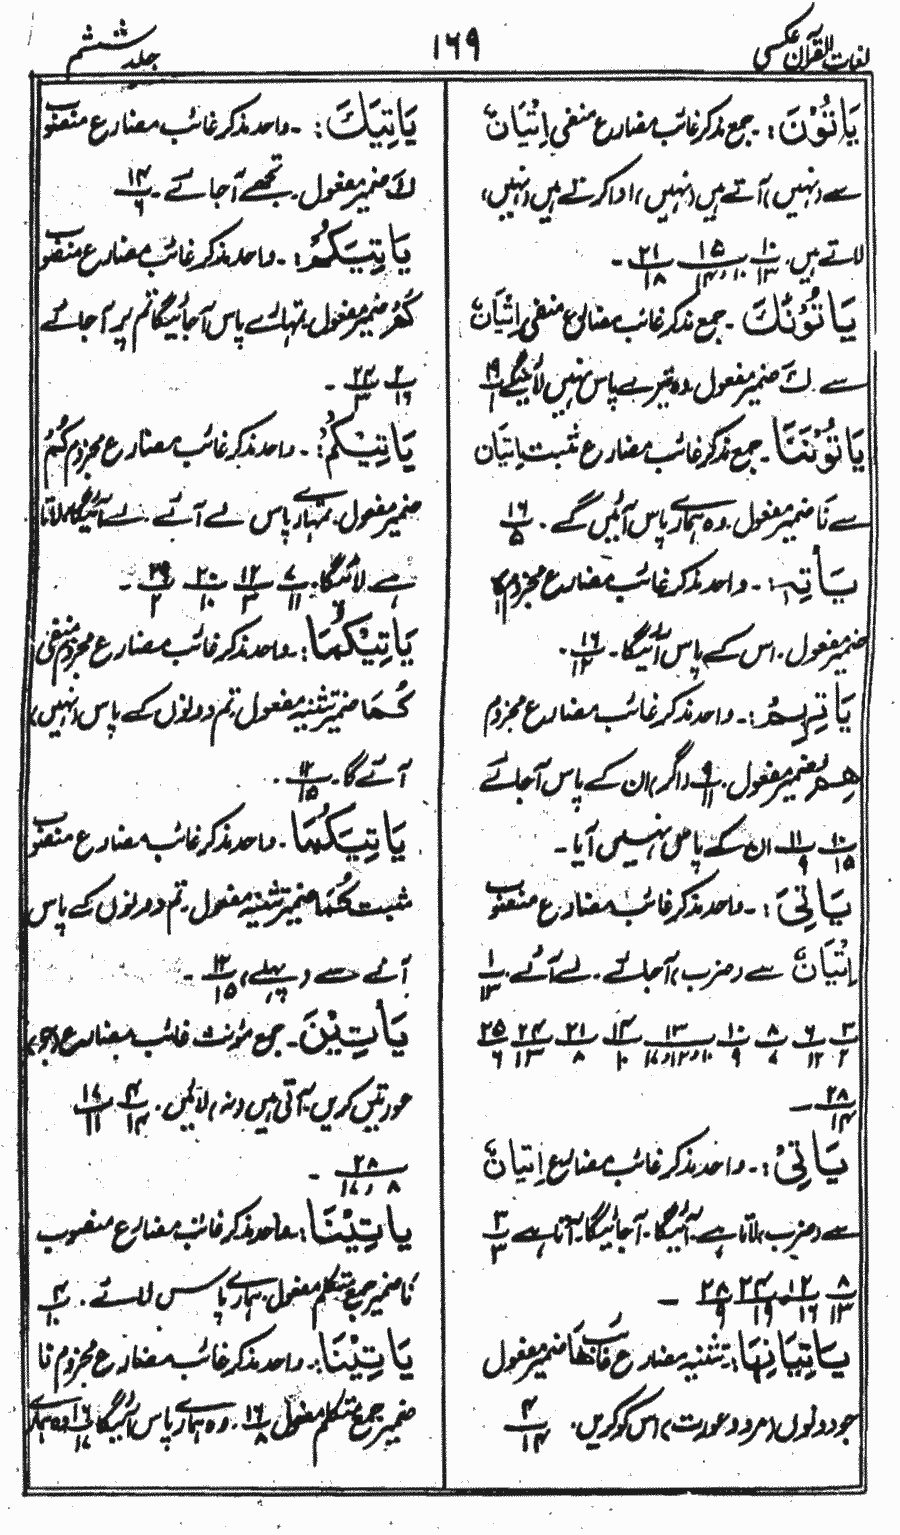 لغات القرآن عکسی
۱۶۹
جلد ششم
یَاتُوْنَ: ۔ جمع مذکر غائب مضارع منفی اِتْیَانٌ
سے (نہیں) آتے ہیں (نہیں) ادا کرتے ہیں (نہیں)
لاتے ہیں۔ ۱۰/۱۳ ۱۵/۱۰، ۱۴ ۲۱/۱۸ ۔
یَاتُوْنَكَ ۔ جمع مذکر غائب مضارع منفی اِتْیَانٌ
سے ۔ كَ ضمیر مفعول ۔ وہ تیرے پاس نہیں لائینگے ۱۹/۱
یَاتُوْنَنَا ۔ جمع مذکر غائب مضارع مثبت اِتیَان
سے نَا ضمیر مفعول۔ وہ ہمارے پاس آئیں گے ۔ ۱۶/۵
یَاْتِہٖ: ۔ واحد مذکر غائب مضارع مجزوم ہٖ
ضمیر مفعول ۔ اس کے پاس آئیگا۔ ۱۶/۱۲ ۔
یَاتِہِمْ: ۔ واحد مذکر غائب مضارع مجزوم
ھِمْ ضمیر مفعول۔ ۹/۱۱ (اگر) ان کے پاس آجائے
۱۰/۱۵ ۱۱/۹ ان کے پاس نہیں آیا ۔
یَاتِیَ: ۔ واحد مذکر غائب مضارع منصوب
اِتْیَانٌ سے (ضرب) آجائے ۔ لے آئے ۔ ۱/۱۳
۳/۲ ۶/۱۲ ۸/۷ ۱۰/۹ ۱۳/۱۰، ۱۲، ۱۷ ۱۴/۱۰ ۲۱/۸ ۲۴/۱۳ ۲۵/۶
۲۸/۱۴ ۔
یَاتِیْ: ۔ واحد مذکر غائب مضارع اِتیَانٌ
سے (ضرب) لاتا ہے ۔ آئیگا ۔ آجائیگا ۔ آتا ہے ۳/۳
۸/۱۳ ۱۲/۱۶ ۲۴/۱۹ ۲۸/۹ ۔
یَاتِیَانِہَا: تثنیہ مضارع غائب ھَا ضمیر مفعول
جو دونوں (مرد و عورت) اس کو کریں۔ ۴/۱۴
یَاتِیَكَ: ۔ واحد مذکر غائب مضارع منصوب
كَ ضمیر مفعول ۔ تجھے آ جائے ۔ ۱۴/۶
یَاتِیَکُمْ: ۔ واحد مذکر غائب مضارع منصوب
کُمْ ضمیر مفعول تمہارے پاس آجائیگا تم پر آ جائے
۲/۱۶ ۲۴/۳ ۔
یَاتِیْکُمْ: ۔ واحد مذکر غائب مضارع مجزوم کُمْ
ضمیر مفعول ۔ تمہارے پاس لے آئے ۔ لے آئیگا لاتا
ہے لائیگا۔ ۷/۱۱ ۱۲/۳ ۲۰/۱۰ ۲۹/۲ ۔
یَاتِیْکُمَا: ۔ واحد مذکر غائب مضارع مجزوم منفی
کُمَا ضمیر تثنیہ مفعول تم دونوں کے پاس (نہیں)
آئے گا ۔ ۱۲/۱۵ ۔
یَاتِیَکُمَا ۔ واحد مذکر غائب مضارع منصوب
مثبت کُمَا ضمیر تثنیہ مفعول ۔ تم دونوں کے پاس
آنے سے (پہلے) ۱۲/۱۵ ۔
یَاتِیْنَ ۔ جمع مؤنث غائب مضارع (جو)
عورتیں کریں۔ آتی ہیں (نہ) لائیں۔ ۴/۱۴ ۱۷/۱۱
۲۸/۸، ۱۷ ۔
یاتِیْنَا: واحد مذکر غائب مضارع منصوب
نَا ضمیر جمع متکلم مفعول ۔ ہمارے پاس لائے ۔ ۴/۱۰
یَاتِیْنَا: ۔ واحد مذکر غائب مضارع مجزوم نا
ضمیر جمع متکلم مفعول ۱۶/۸ ۔ وہ ہمارے پاس آئیگا ۱۶/۱۷ وہ ہمارے